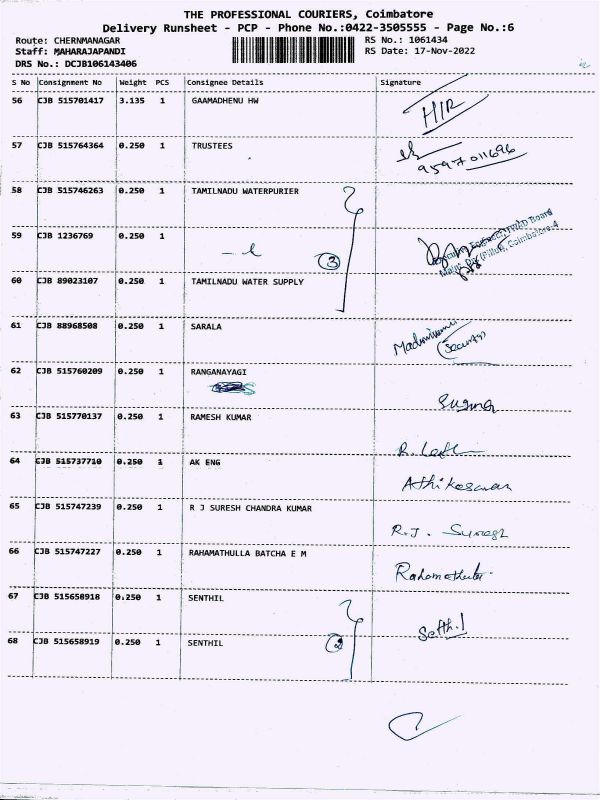 THE PROFESSIONAL COURIERS, Coimbatore
Delivery Runsheet - PCP - Phone No.:0422-3505555 - Page No.:6
Route: CHERNMANAGAR
Staff: MAHARAJAPANDI
DRS No.: DCJB106143406
RS No.: 1061434
RS Date: 17-Nov-2022
S No Consignment No Weight PCS Consignee Details Signature
56 CJB 515701417 3.135 1 GAAMADHENU HW HIR
57 CJB 515764364 0.250 1 TRUSTEES
9597011696
58 CJB 515746263 0.250 1 TAMILNADU WATERPURIER
59 CJB 1236769 0.250 1
3
Coimbatore-4
60 CJB 89023107 0.250 1 TAMILNADU WATER SUPPLY
61 CJB 88968508 0.250 1 SARALA
(Security)
62 CJB 515760209 0.250 1 RANGANAYAGI
63 CJB 515770137 0.250 1 RAMESH KUMAR
64 CJB 515737710 0.250 1 AK ENG
65 CJB 515747239 0.250 1 R J SURESH CHANDRA KUMAR
R.J. Suresh
66 CJB 515747227 0.250 1 RAHAMATHULLA BATCHA E M
67 CJB 515658918 0.250 1 SENTHIL
68 CJB 515658919 0.250 1 SENTHIL
2